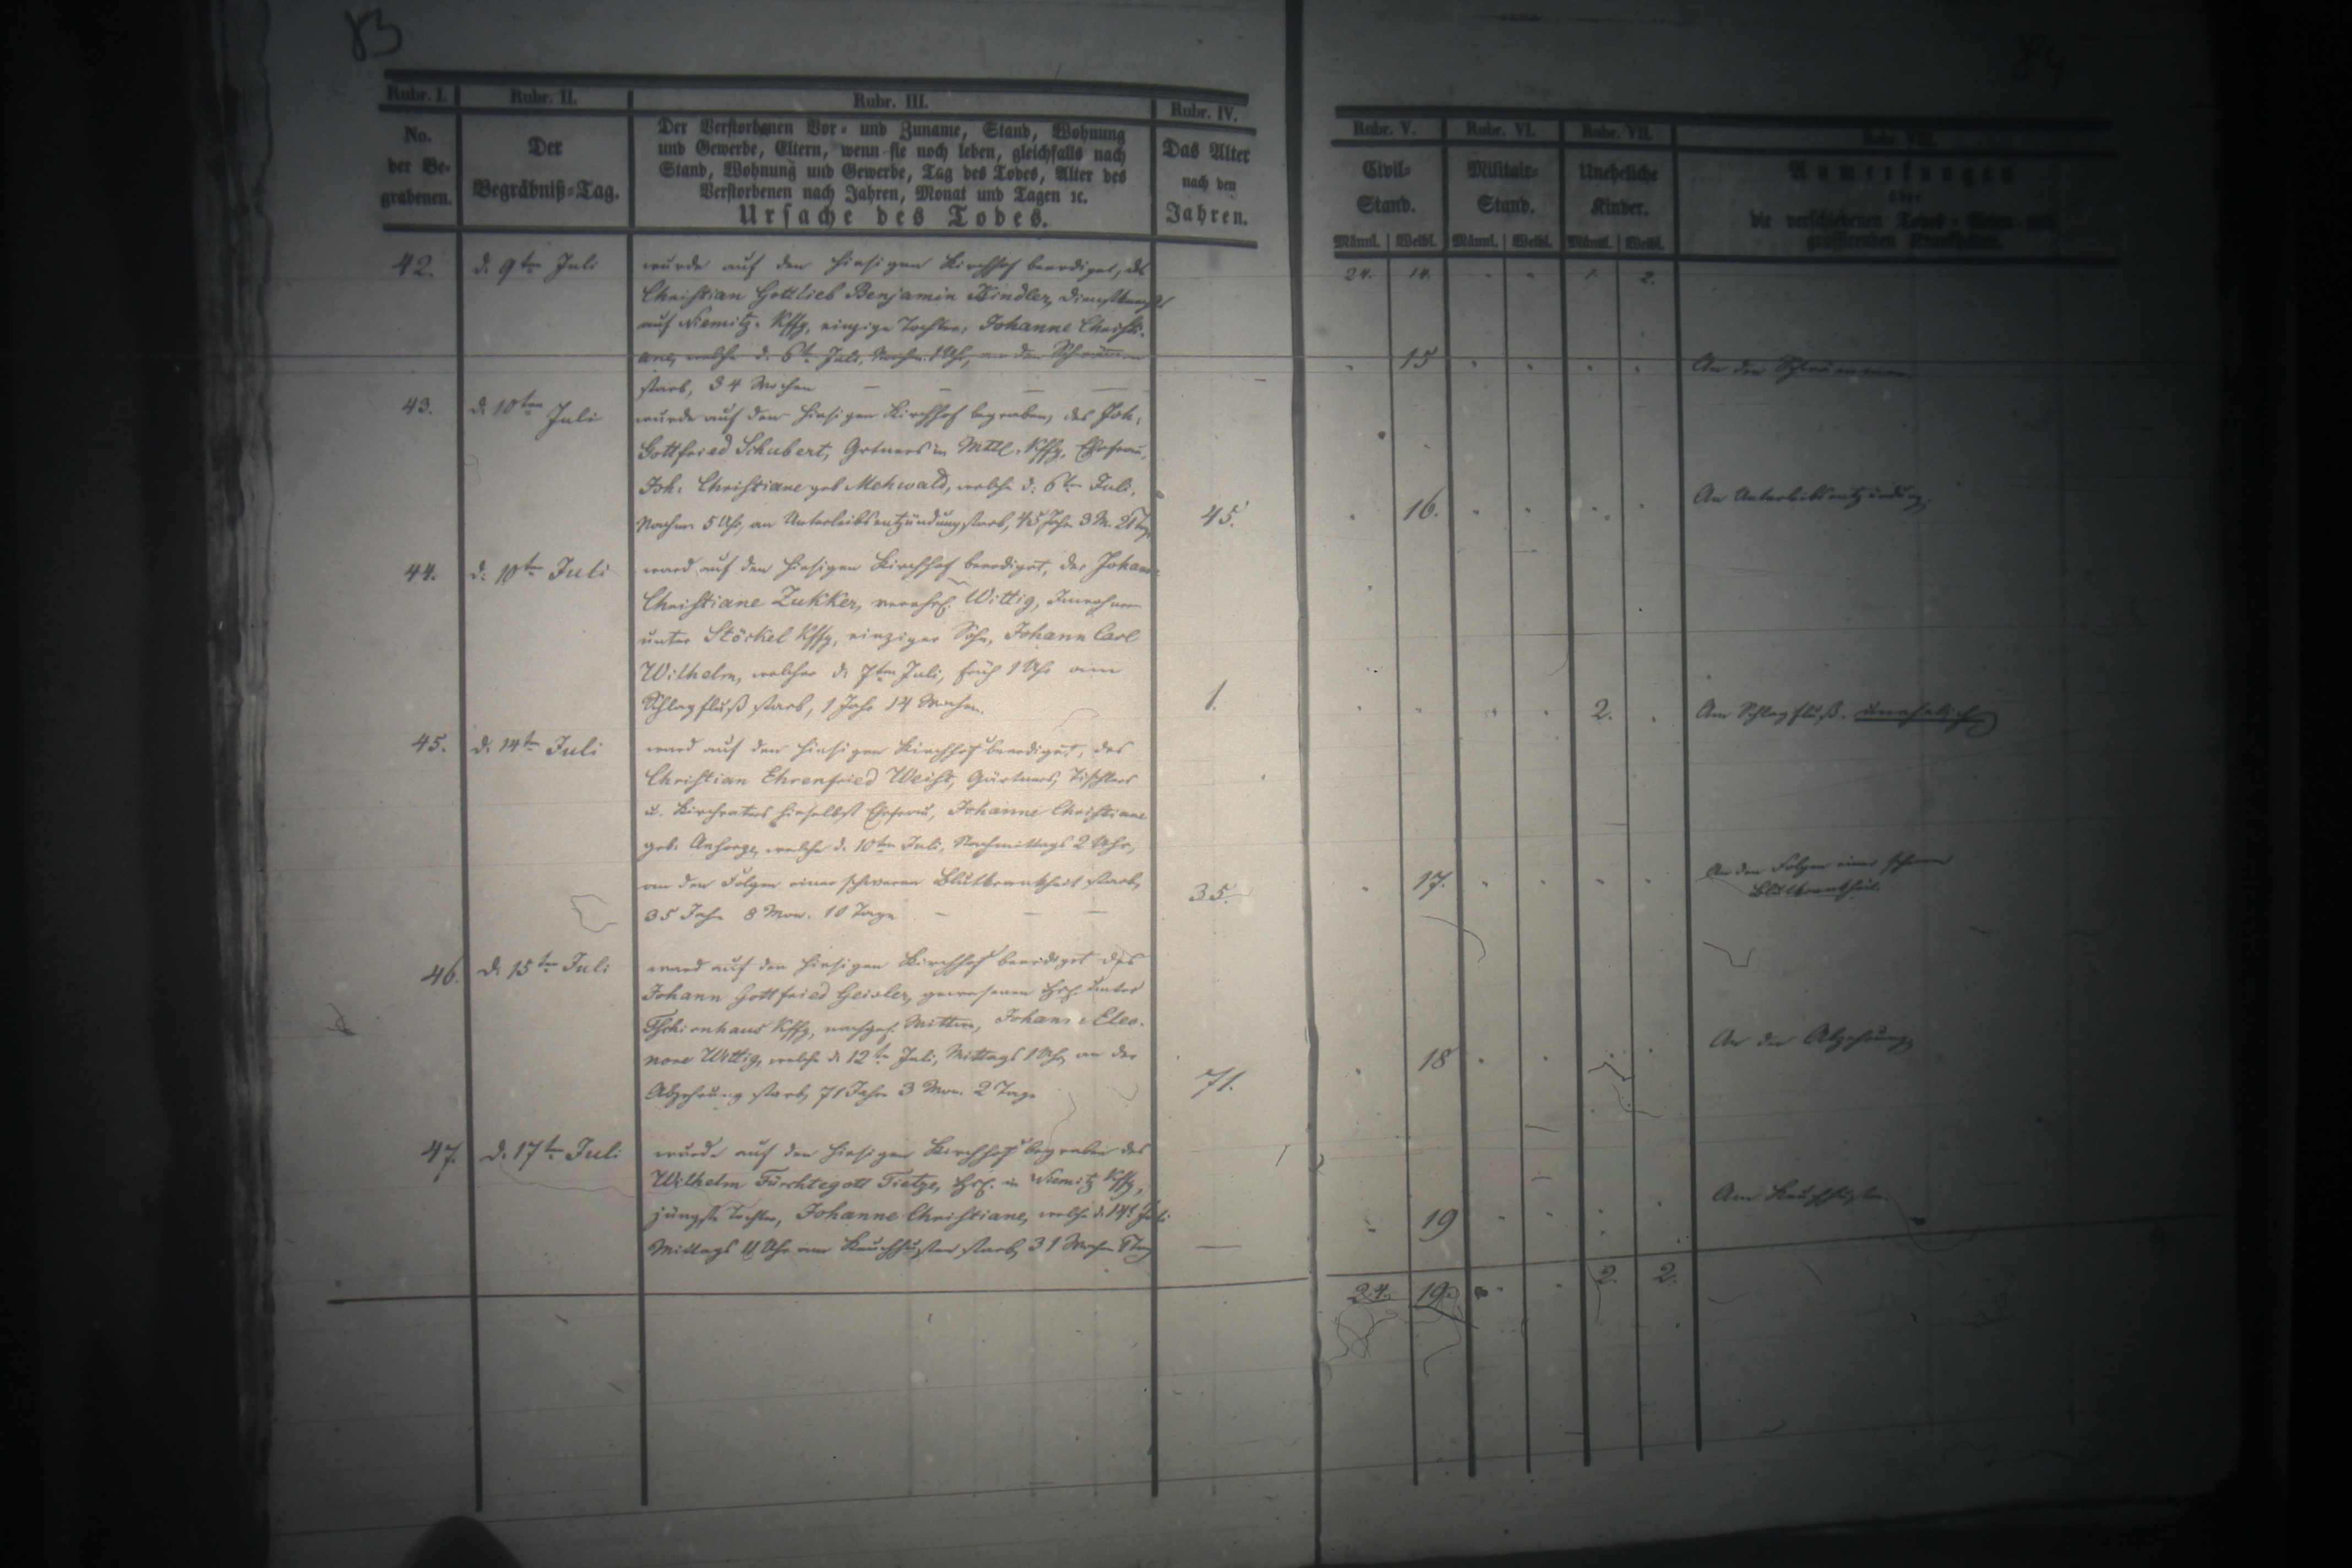 83
84
Rubr. I.
Rubr. II.
Rubr. III.
Rubr. IV.
No.
der Be-
grabenen.
Der
Begräbniß-Tag.
Der Verstorbenen Vor- und Zuname, Stand, Wohnung
und Gewerbe, Eltern, wenn sie noch leben, gleichfalls nach
Stand, Wohnung und Gewerbe, Tag des Todes, Alter des
Verstorbenen nach Jahren, Monat und Tagen ꝛc.
Ursache des Todes.
Das Alter
nach den
Jahren.
Rubr. V.
Rubr. VI.
Rubr. VII.
Rubr. VIII.
Civil-
Stand.
Militair-
Stand.
Uneheliche
Kinder.
Anmerkungen
über
die verschiedenen Todes-Arten und
grassirenden Krankheiten.
Männl. Weibl. Männl. Weibl. Männl. Weibl.
24. 14. 1. 2.
42. d. 9ten Juli
wurde auf den hiesigen Kirchhof beerdiget, des
Christian Gottlieb Benjamin Kindler, Dienstknechts
auf Niemitz-Kffg, einzige Tochter, Johanne Christi-
ane, welche d. 6t. Juli, Nachm. 1 Uhr, an den Schwämmen
starb, 34 Wochen
15
An den Schwämmen
43. d. 10ten Juli
wurde auf den hiesigen Kirchhof begraben, des Joh.
Gottfried Schubert, Grtners in Mttl. Kffg, Ehefrau,
Joh. Christiane geb Mehwald, welche d. 6ten Juli,
Nachm 5 Uhr, an Unterleibsentzündung starb, 45 Jahr 3 M. 21 Tg.
45.
16.
An Unterleibsentzündung.
44. d. 10ten Juli
ward auf den hiesigen Kirchhof beerdiget, der Johanne
Christiane Zukker, verehel. Wittig, Inwohnerin
unter Stöckel Kffg, einziger Sohn, Johann Carl
Wilhelm, welcher d. 7ten Juli, früh 1 Uhr am
Schlagfluß starb, 1 Jahr 14 Wochen.
1.
2.
Am Schlagfluß. unehelich
45. d. 14ten Juli
ward auf den hiesigen Kirchhof beerdiget, des
Christian Ehrenfried Weist, Gärtners, Tischlers
u. Kirchvaters hieselbst Ehefrau, Johanne Christiane
geb. Ansorge, welche d. 10ten Juli, Nachmittags 2 Uhr,
an den Folgen einer schweren Blutkrankheit starb,
35 Jahr 8 Mon. 10 Tage
35.
17.
An den Folgen einer schweren
Blutkrankheit.
46. d. 15ten Juli
ward auf den hiesigen Kirchhof beerdiget des
Johann Gottfried Geisler, gewesenen Hsl. unter
Tschirnhaus Kffg, nachgel. Wittwe, Johanne Eleo-
nore Wittig, welche d. 12te Juli, Mittags 1 Uhr, an der
Abzehrung starb, 71 Jahre 3 Mon. 2 Tage
71.
18
An der Abzehrung
47. d. 17ten Juli
wurde auf den hiesigen Kirchhof begraben des
Wilhelm Fürchtegott Tietze, Hsl. in Niemitz Kffg,
jüngste Tochter, Johanne Christiane, welche d. 14t. Juli
Mittags 11 Uhr am Keuchhusten starb, 31 Wochen
19
Am Keuchhusten
24. 19. 2. 2.